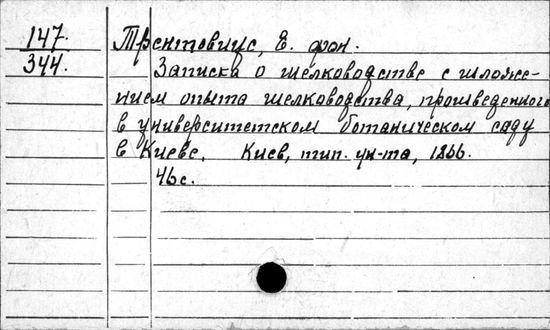 147.
344.
Трентовиус, Е. фон.
Записка о шелководстве с изложе-
нием опыта шелководства, произведенного
в университетском ботаническом саду
в Киеве. Киев, тип. ун-та, 1866.
46 с.